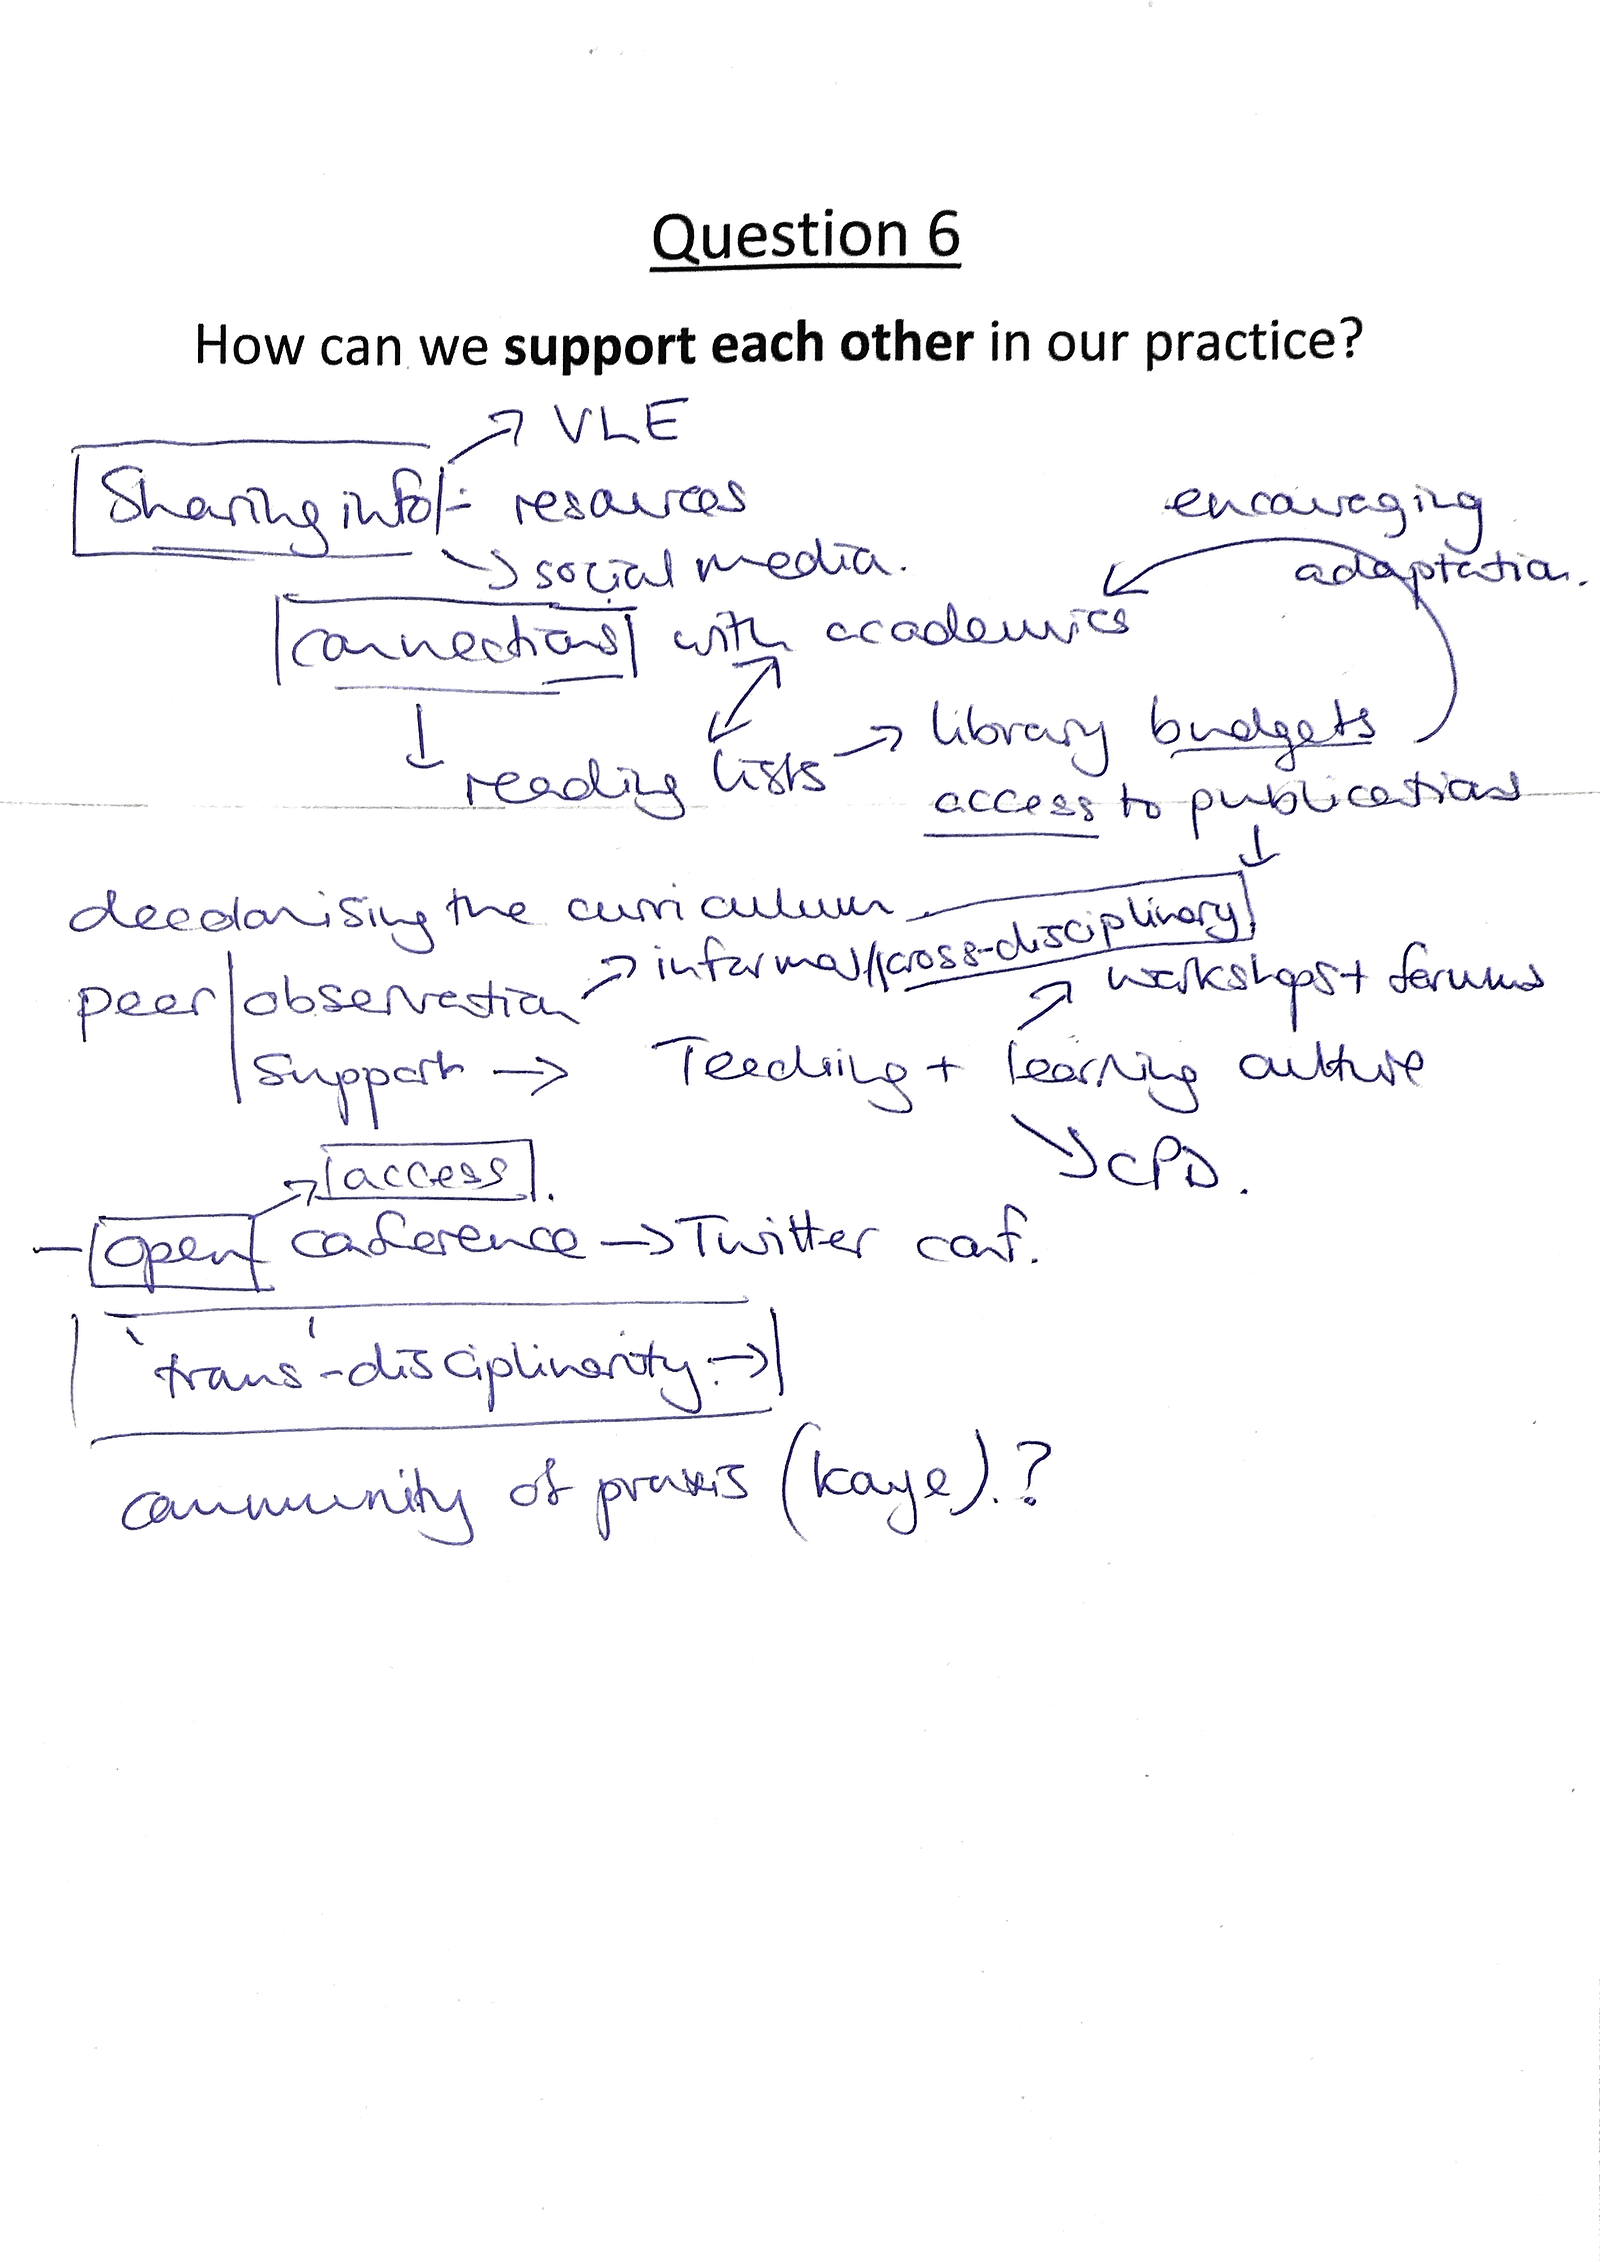 Question 6
How can we support each other in our practice?
→ VLE
Sharing info - resources
→ social media.
encouraging
adaptation.
connections with academics
↓ reading lists → library budgets
access to publications
decolonising the curriculum
peer observation → informal/cross-disciplinary
workshops + forums
support → Teaching + learning culture
→ CPD.
access.
- open conference → Twitter conf.
'trans'-disciplinarity →
community of praxis (Kaye).?